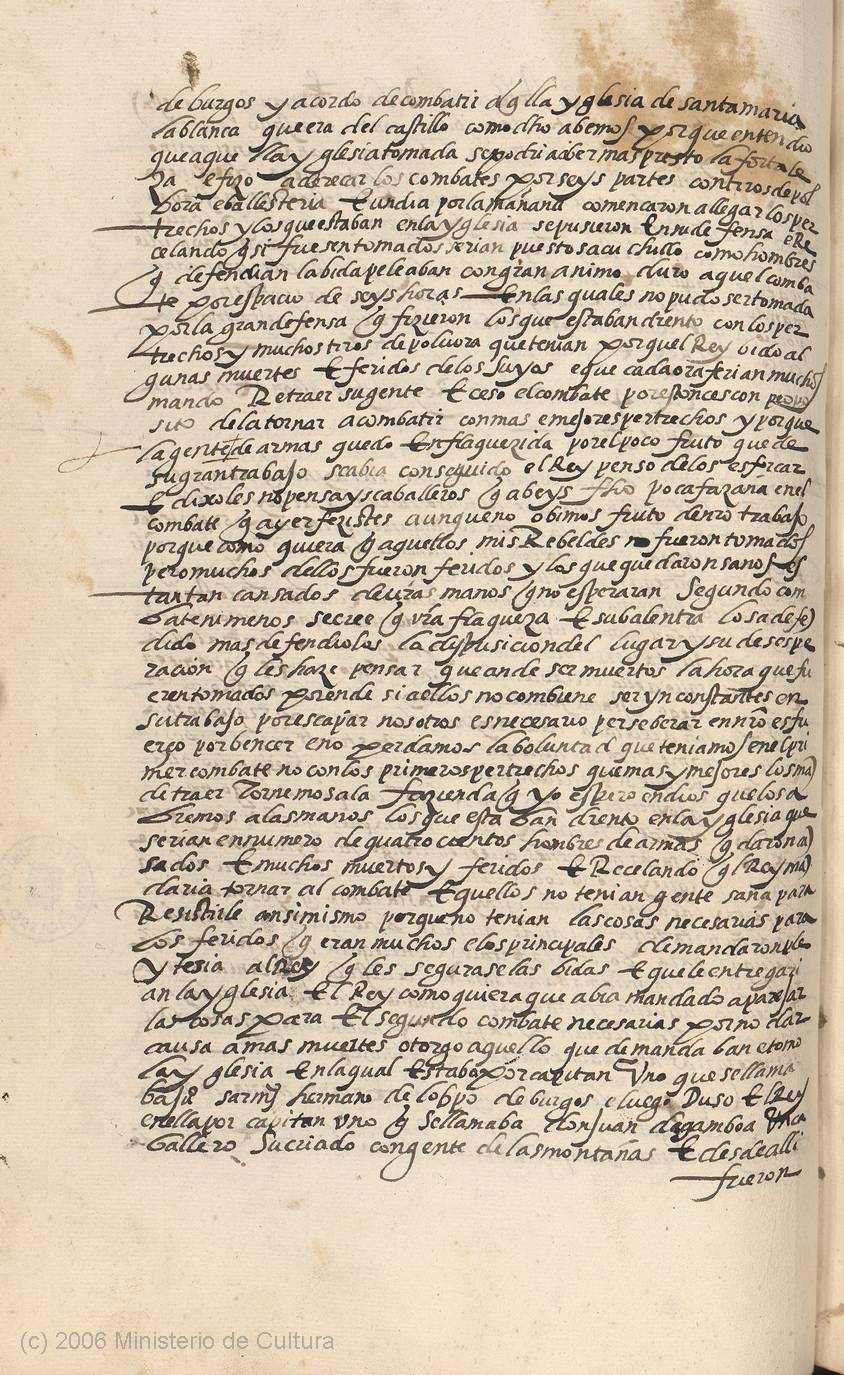 de burgos y acordo de combatir aq̃lla yglesia de santamaria
la blanca que era del castillo como dho abemos porque entendio
que aquella yglesia tomada se podria aber mas presto la fortale
za e fizo aderecar los combates por seys partes con tiros de pol
bora e ballesteria E un dia por la mañana comencaron allegar los per
trechos y los que estaban en la yglesia se pusieron En su defensa e Re
celando q̃ si fuesen tomados serian puestos a cuchillo como hombres
q̃ defendian la bida peleaban con gran animo duro aquel comba
te por espacio de seys horas En las quales no pudo ser tomada
por la gran defensa q̃ fizieron los que estaban dientro con los per
trechos y muchos tiros de polvora que tenian porque l Rey vido al
gunas muertes E feridos de los suyos e que cada ora ferian muchos
mando Retraer su gente E ceso el combate por estonces con propo
sito de la tornar a combatir con mas e mejores pertrechos y porque
la gente de armas quedo Enflaquezida por el poco fruto que de
su gran trabajo se abia conseguido el Rey penso de los esforcar
E dixoles no pensays caballeros q̃ abeys fho poca fazaña en el
combate q̃ ayer fezistes aunque no obimos fruto de nro trabajo
porque como quiera q̃ aquellos mis Rebeldes no fueron tomados
pero muchos dellos fueron feridos y los que quedaron sanos es
tan tan cansados de vras manos q̃ no esperaran Segundo com
bate ni menos se cree q̃ vra flaqueza E su balentia los a defen
dido mas defendiolos la dispusicion del lugar y su desespe
racion q̃ les haze pensar que an de ser muertos la hora que fu
eren tomados por ende si a ellos no combiene ser ynconstantes en
su trabajo por escapar nosotros es necesario perseberar en nro esfu
erço por bencer e no perdamos la boluntad que teniamos en el pri
mer combate no con los primeros pertrechos que mas y mejores los mã
de traer Tornemos a la fazienda q̃ yo espero en dios que los a
bremos a las manos los que estaban dientro en la yglesia que
serian en numero de quatrocientos hombres de armas
sados E muchos muertos y feridos E Recelando q̃l Rey mã
daria tornar al combate E quellos no tenian gente sana para
Resistirle ansimismo porque no tenian las cosas necesarias para
los feridos q̃ eran muchos e los principales demandaron ple
ytesia al Rey q̃ les segurase las bidas E que le entregari
an la yglesia El Rey como quiera que abia mandado aparejar
las cosas para El segundo combate necesarias por no dar
causa a mas muertes otorgo aquello que demandaban e tomo
la yglesia En la qual Estaba por capitan Vno que se llama
ba hermano del obpo de burgos e luego Puso El Rey
en ella por capitan Vno q̃ Se llamaba don Juan de gamboa Vn ca
ballero Su criado con gente de las montañas E desde alli
fueron
(c) 2006 Ministerio de Cultura